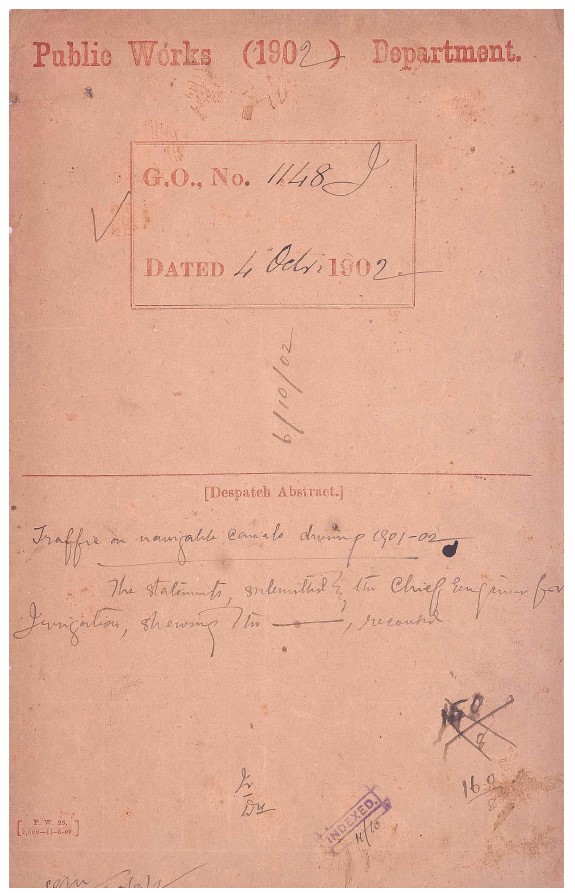 Public Works (1902) Department.
G.O., No. 1148 I
DATED 4 Octr. 1902.
6/10/02
[Despatch Abstract.]
Traffic on navigable Canals during 1901-02
The statements, submitted by the Chief Engineer for
Irrigation, shewing the ———, recorded
168
INDEXED.
P. W. 26,